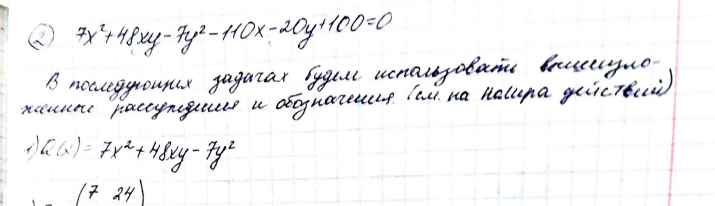 ② 7x²+48xy-7y²-110x-20y+100=0
В последующих задачах будем использовать вышеизло-
женные рассуждения и обозначения. (см. на номера действий)
1) Q(x)= 7x²+48xy-7y²
(7 24)